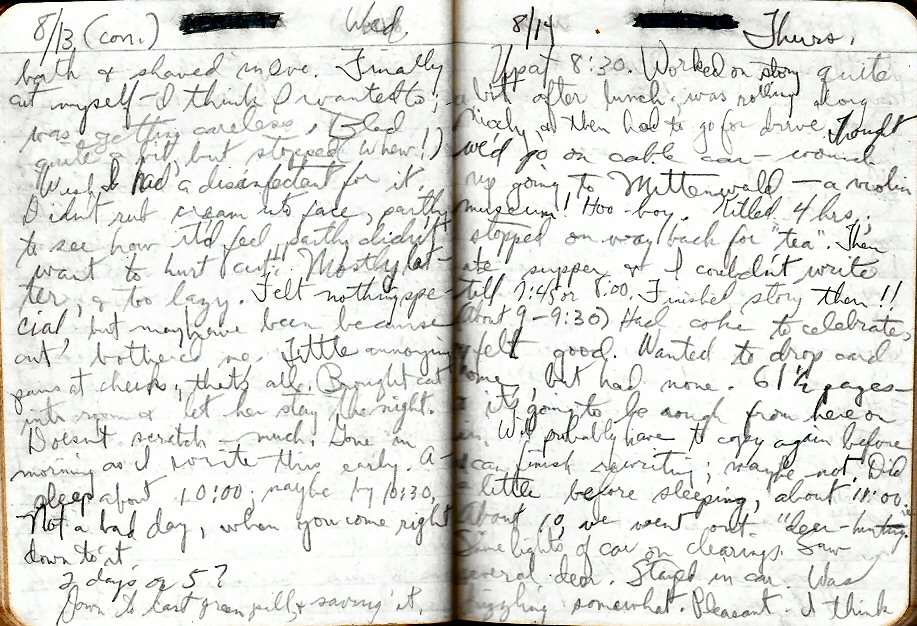 8/13 (con.) Wed.
bath & shaved move. Finally
cut myself - I think I wanted to;
was getting careless. Bled
quite a bit, but stopped (whew!)
Wish I had a disenfectant for it.
Didn't rub cream into face, partly
to see how it'd feel, partly didn't
want to hurt "cut". Mostly lat-
ter, & too lazy. Felt nothing spe-
cial, but may have been because
cut bothered me. Little annoying
pains at cheek, that's all. Brought cat
into room & let her stay the night.
Doesn't scratch - much. Gone in
morning as I write this early. A-
sleep about 10:00, maybe by 10:30.
Not a bad day, when you come right
down to it.
2 days or 5?
Down to last green pill, & saving it.
8/14 Thurs.
Up at 8:30. Worked on story quite
a bit after lunch, was rolling along
nicely, & then had to go for drive. Thought
we'd go on cable car - wound
up going to Mittenwald - a violin
museum! Hoo-boy. Killed 4 hrs.;
stopped on way back for "tea". Then
ate supper, & I couldn't write
till 7:45 or 8:00. Finished story then!!
(About 9-9:30) Had coke to celebrate,
felt good. Wanted to drop card
home, but had none. 61 1/2 pages -
& it's going to be rough from here on
in. Will probably have to copy again before
I can finish rewriting; maybe not. Did
a little before sleeping, about 11:00.
About 10, we went out "deer-hunting".
Shine lights of car on clearings. Saw
several deer. Stayed in car. Was
drizzling somewhat. Pleasant. I think